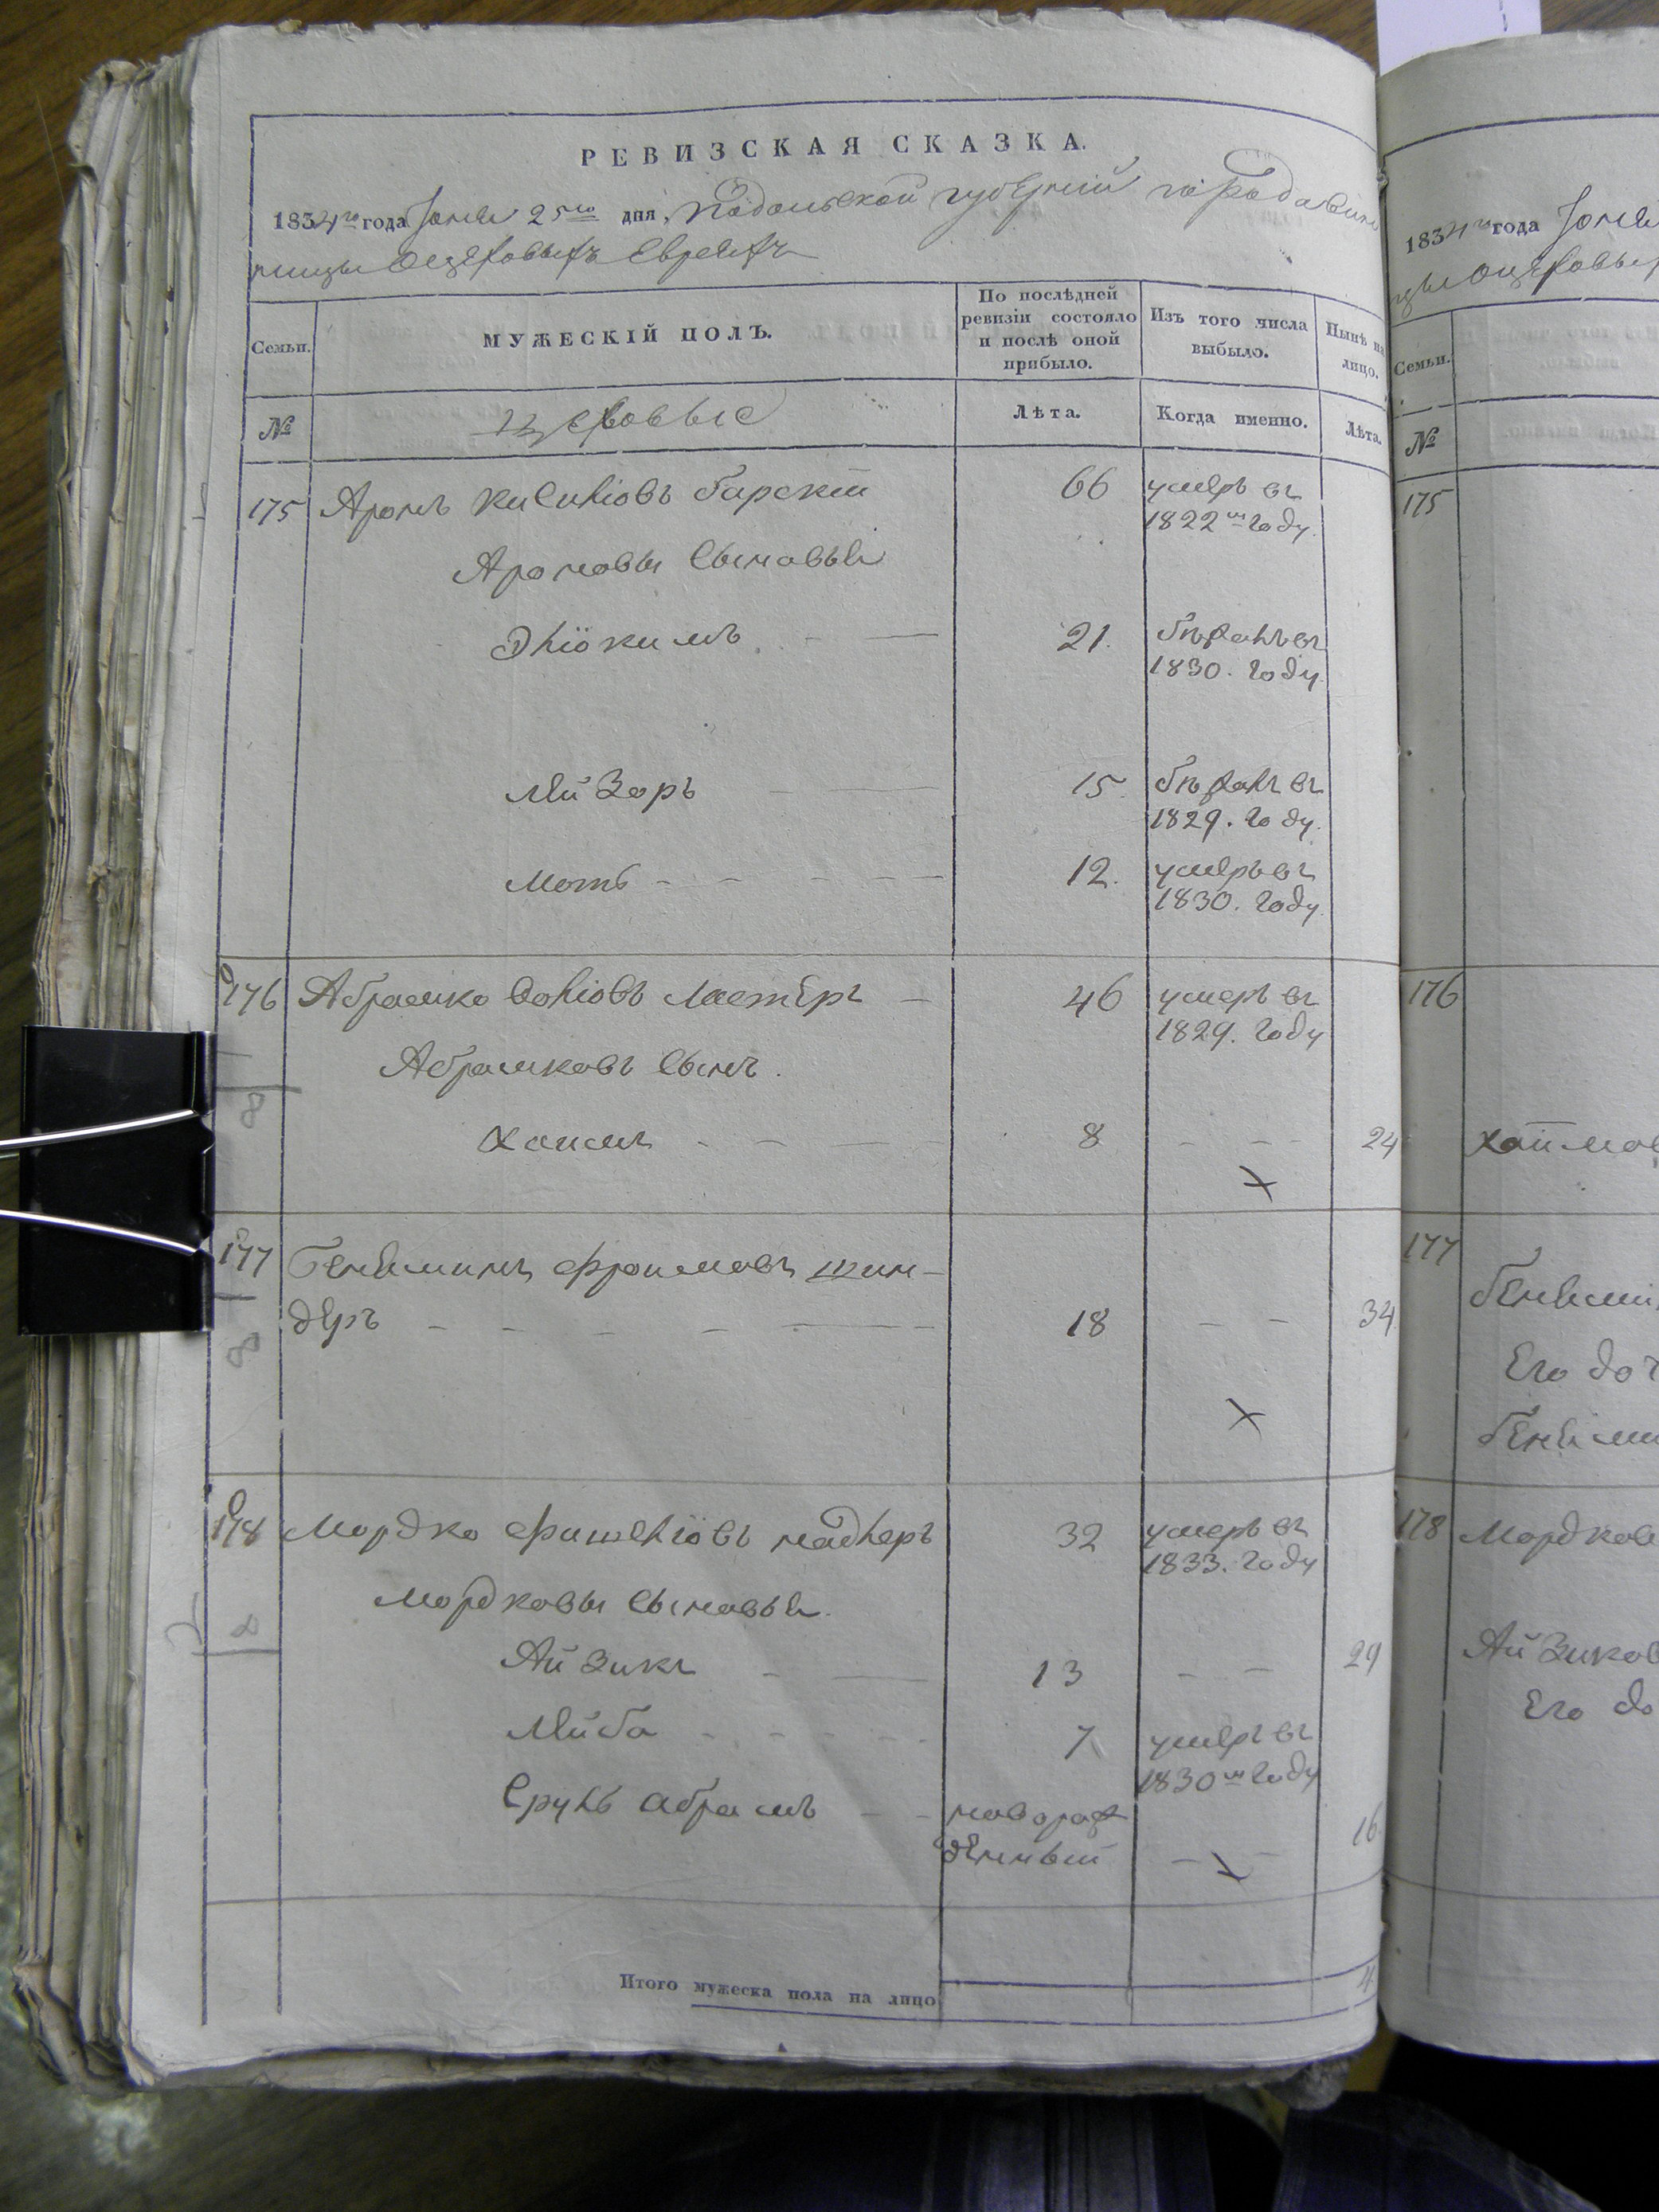 РЕВИЗСКАЯ СКАЗКА.
1834го года Іюня 25го дня, Подольской губерніи города Вин
ницы о цеховыхъ Евреяхъ
Семьи. МУЖЕСКІЙ ПОЛЪ. По послѣдней ревизіи состояло и послѣ оной прибыло. Изъ того числа выбыло. Нынѣ на лицо.
№ цеховые Лѣта. Когда именно. Лѣта.
175 Аронъ Барскій 66 умеръ въ
1822м году.
Ароновы сыновья
Эліокимъ 21. бѣжалъ въ
1830. году.
Лейзоръ 15. бѣжалъ въ
1829. году.
Моть 12. умеръ въ
1830. году.
176 Абрамко Ластеръ 46 умеръ въ
1829. году
Абрамковъ сынъ.
Хаимъ 8 24
177 Беньяминъ Фроимовъ Шин-
деръ 18 34
178 Мордко Фишеліовъ Надлеръ 32 умеръ въ
1833. году
Мордковы сыновья.
Айзикъ 13 29
Лейба 7 умеръ въ
1830м году
Сруль Абрамъ новорож
денный 16
Итого мужеска пола на лицо 4
1834го года Іюня
цы о цеховых
Семьи.
№
175
176
Хаимов
177
Беньями
Его доч
Беньями
178 Мордков
Айзиков
Его до